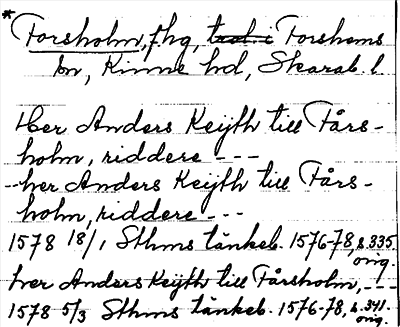 * Forsholm, f.hg, trol. i Forshems
sn, Kinne hd, Skarab. l
Her Anders Keijth till Fårs-
holm, riddere - - -
her Anders Keijth till Fårs-
holm, riddere - - -
1578 18/1 Sthms tänkeb. 1576-78, s. 335. orig.
her Anders Keijth till Fårsholm, - - -
1578 5/3 Sthms tänkeb. 1576-78, s. 341. orig.